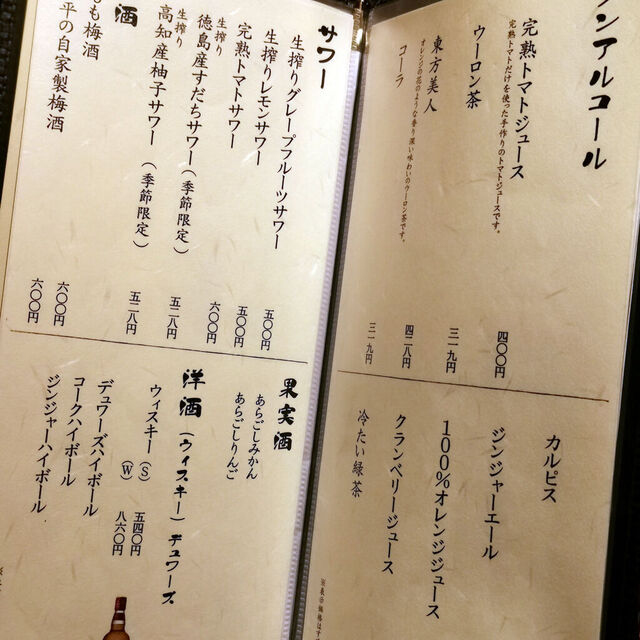 ンアルコール
完熟トマトジュース
完熟トマトだけを使った手作りのトマトジュースです。
四〇〇円
ウーロン茶
三一九円
東方美人
オレンジの花のような香り深い味わいのウーロン茶です。
四二八円
コーラ
三一九円
カルピス
ジンジャーエール
100%オレンジジュース
クランベリージュース
冷たい緑茶
サワー
生搾りグレープフルーツサワー
五〇〇円
生搾りレモンサワー
五〇〇円
完熟トマトサワー
六〇〇円
生搾り
徳島産すだちサワー(季節限定)
五二八円
生搾り
高知産柚子サワー(季節限定)
五二八円
酒
も梅酒
六〇〇円
平の自家製梅酒
六〇〇円
果実酒
あらごしみかん
あらごしりんご
洋酒(ウイスキー)デュワーズ
ウィスキー(S)
五四〇円
(W)
八六〇円
デュワーズハイボール
コークハイボール
ジンジャーハイボール